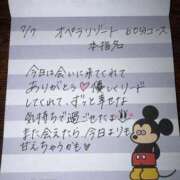 9/7 オペラリゾート 60分コース
本指名
今日は会いに来てくれて
ありがとう♡優しくリード
してくれて、ずっと幸せな
気持ちで過ごせたよ
また会えたら今日よりも
甘んちゃうかも♥